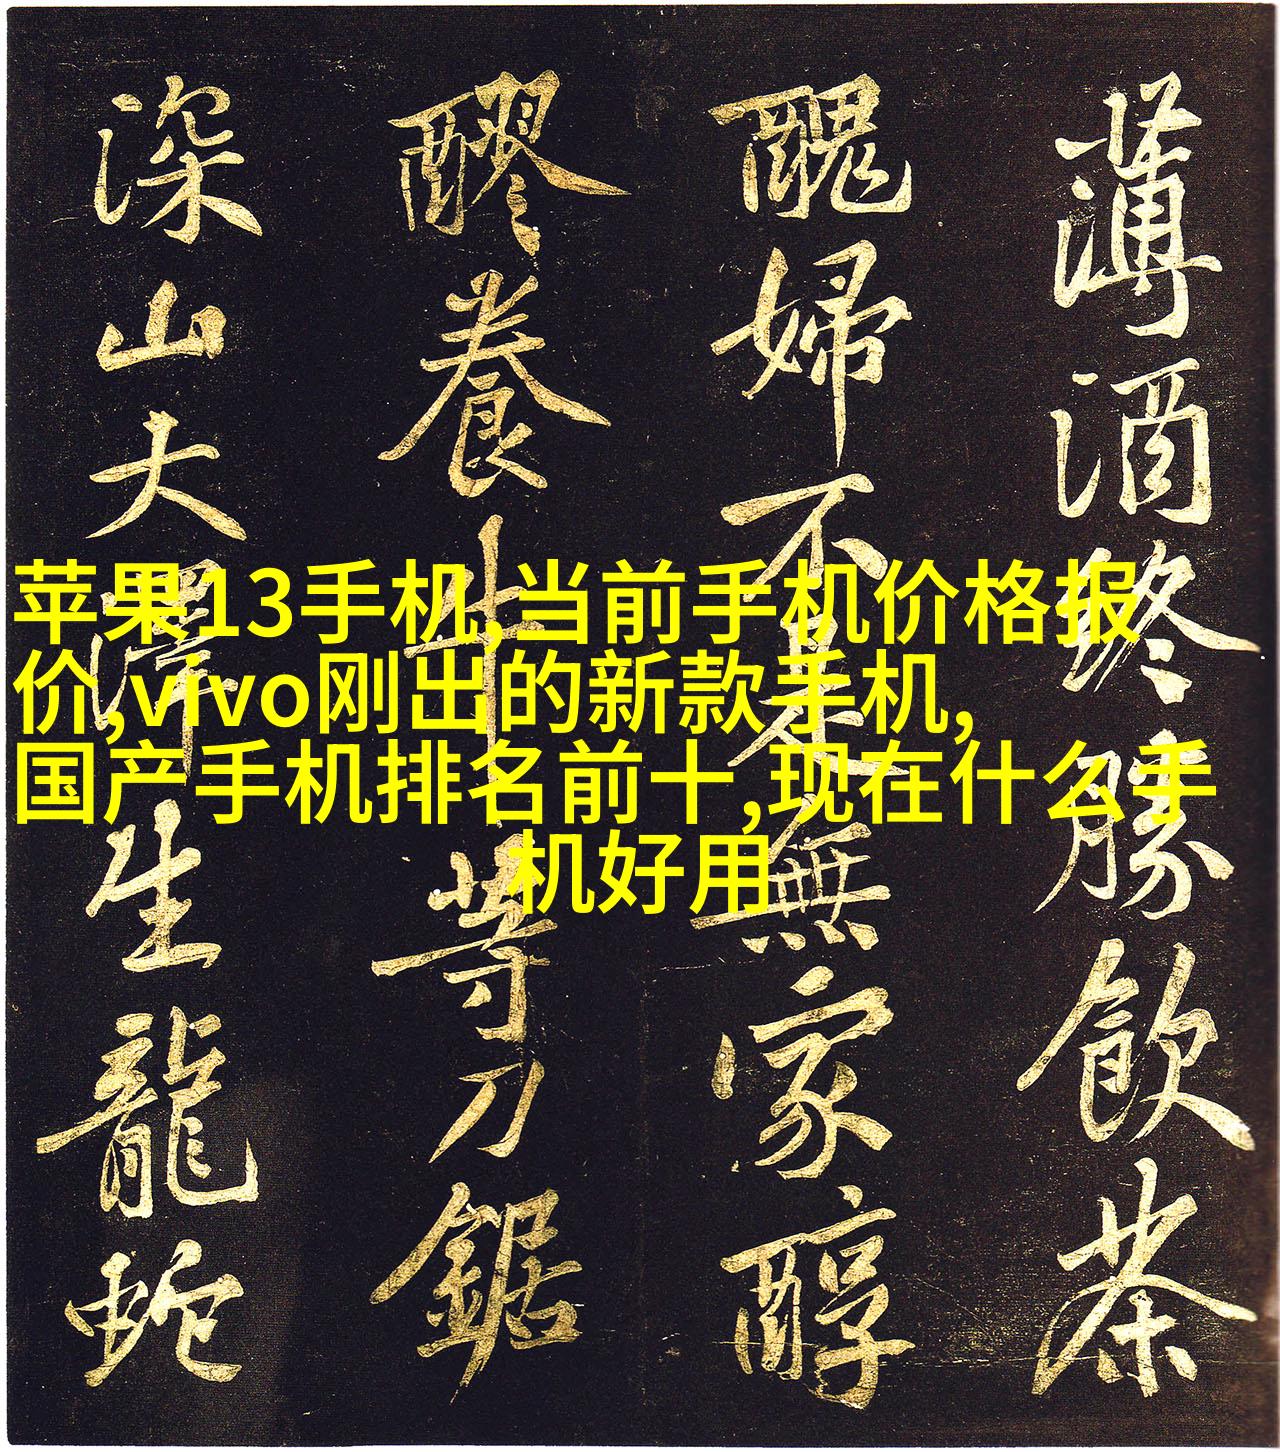 薄酒終勝飲茶
醜婦不是無家醇
醪養牛等刀鋸
深山大澤生龍蛇
苹果13手机,当前手机价格报
价,vivo刚出的新款手机,
国产手机排名前十,现在什么手
机好用